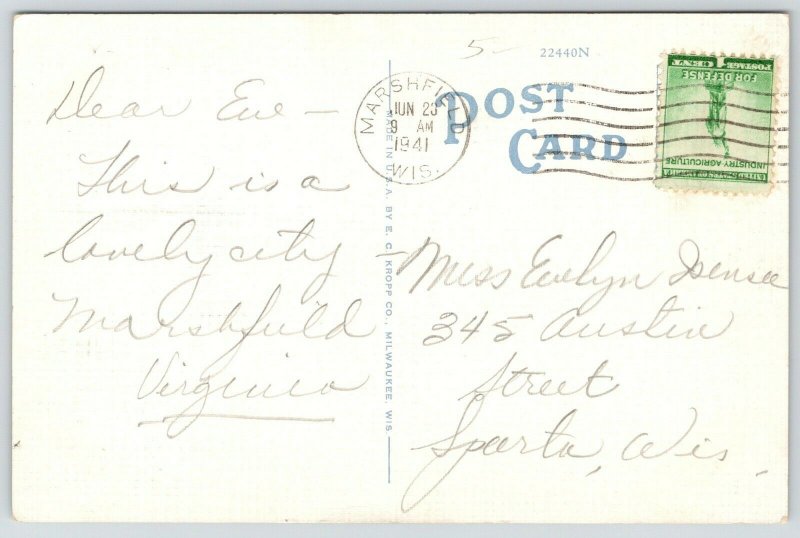 5-
22440N
POST
CARD
MARSHFIELD
JUN 23
9 AM
1941
WIS.
POSTAGE 1 CENT
FOR DEFENSE
INDUSTRY AGRICULTURE
UNITED STATES OF AMERICA
Dear Eve —
This is a
lovely city —
Marshfield
Virginia
MADE IN U.S.A. BY E. C. KROPP CO., MILWAUKEE, WIS.
Miss Evelyn Isensee
345 Austin
Street
Sparta, Wis.